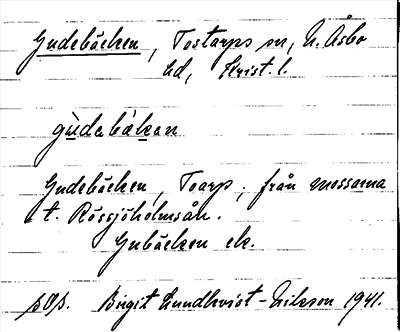 Gudebäcken, Tostarps sn, N. Åsbo
hd, Krist. l.
gùdabäkan
Gudebäcken, Toarp, från mossarna
t. Rössjöholmsån.
Gubäcken ek.
Birgit Lundkvist-Nilsson 1941.